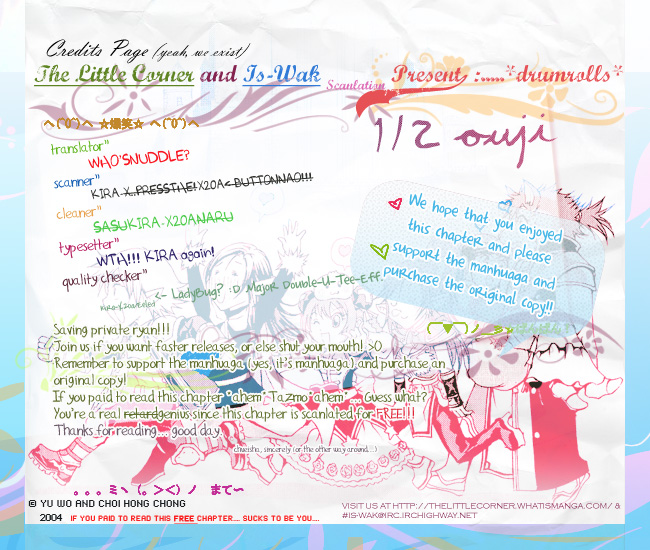 Credits Page (yeah, we exist)
The Little Corner and Is-Wak Scanlation Present :.....*drumrolls*
ヘ(^0^)ヘ ☆爆笑☆ ヘ(^0^)ヘ
1/2 ouji
translator"
WHO'SNUDDLE?
scanner"
KIRA X..PRESSTHE!X20A<BUTTONNAO!!!
cleaner"
SASUKIRA-X20ANARU
typesetter"
WTH!!! KIRA again!
quality checker"
<- LadyBug? :D Major Double-U-Tee-Eff.
We hope that you enjoyed
this chapter and please
support the manhuaga and
purchase the original copy!!
Saving private ryan!!!
Join us if you want faster releases, or else shut your mouth! >0
Remember to support the manhuaga (yes, it's manhuaga) and purchase an
original copy!
If you paid to read this chapter *ahem* Tazmo *ahem* ... Guess what?
You're a real retardgenius since this chapter is scanlated for FREE!!!
Thanks for reading.... good day.
chuesha, sincerely (or the other way around...)
。。。ミヽ(。><)ノ まて～
© YU WO AND CHOI HONG CHONG
2004 IF YOU PAID TO READ THIS FREE CHAPTER... SUCKS TO BE YOU...
VISIT US AT HTTP://THELITTLECORNER.WHATISMANGA.COM/ &
#IS-WAK@IRC.IRCHIGHWAY.NET